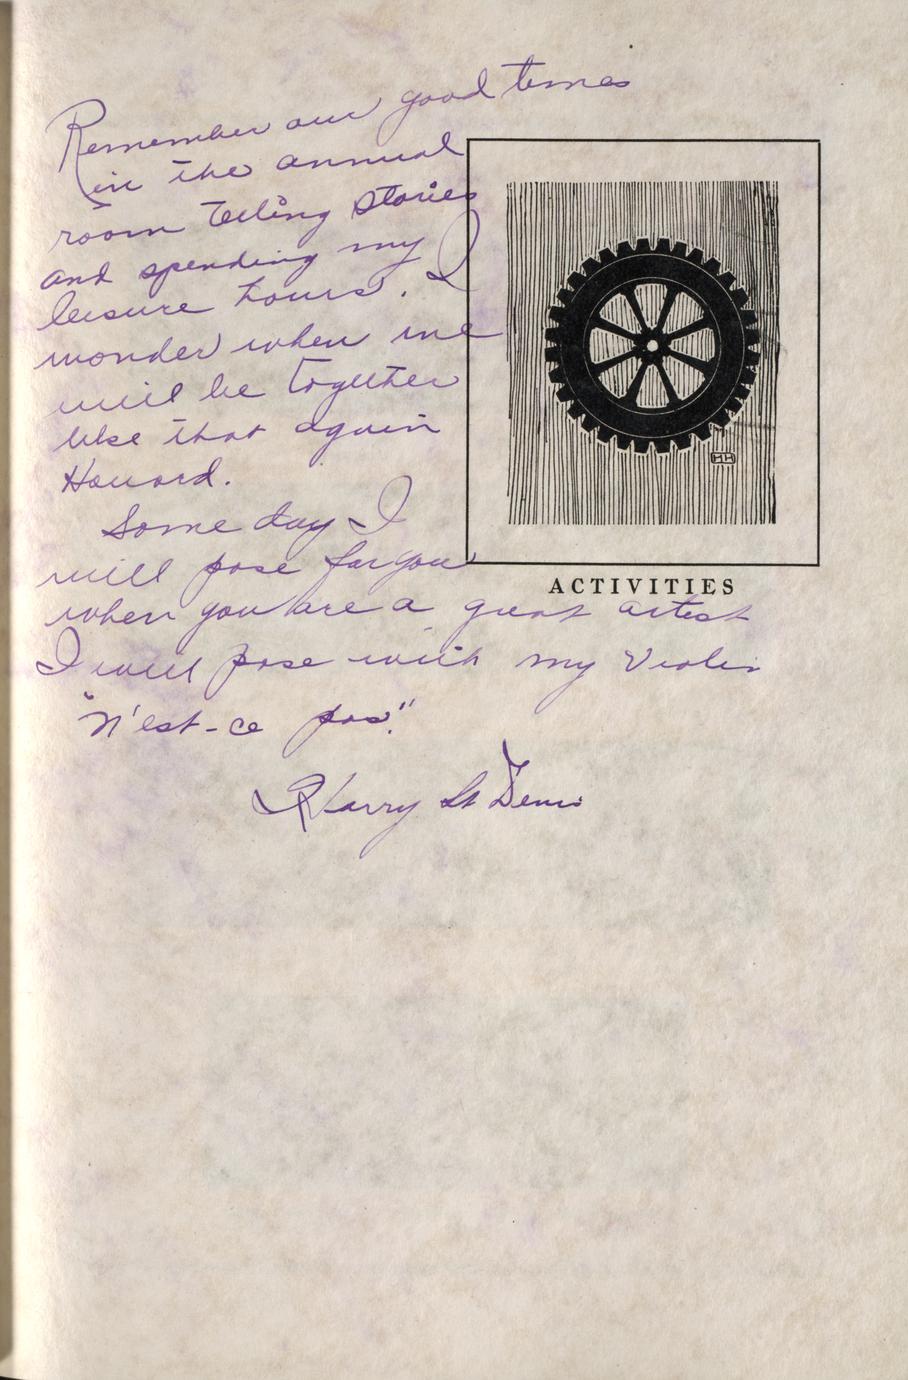 Remember our good times
in the annual
room telling stories
and spending my
leisure hours. I
wonder when we
will be together
like that again
Howard.
Some day I
will pose for you
when you are a great artist
I will pose with my Violin
"n'est-ce pas".
Harry St Denis
HH
ACTIVITIES